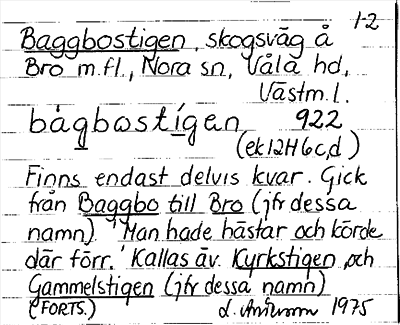 1-2
Baggbostigen, skogsväg å
Bro m.fl., Nora sn, Våla hd,
Västm. l.
bágbostígan 922
(ek 12H6c,d)
Finns endast delvis kvar. Gick
från Baggbo till Bro (jfr dessa
namn). 'Man hade hästar och körde
där förr.' Kallas äv. Kyrkstigen, och
Gammelstigen (jfr dessa namn)
(FORTS.) 1975